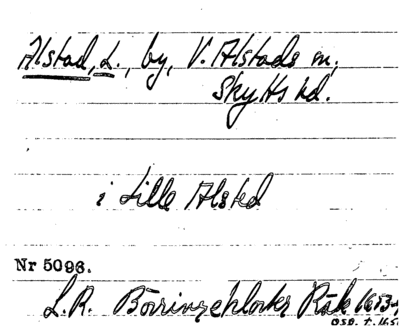 Alstad, L., by, V. Alstads sn,
Skytts hd.
i Lille Alsted
Nr 5096.
L.R. Börringekloster Räk 1653-
OSD. T. U.S.